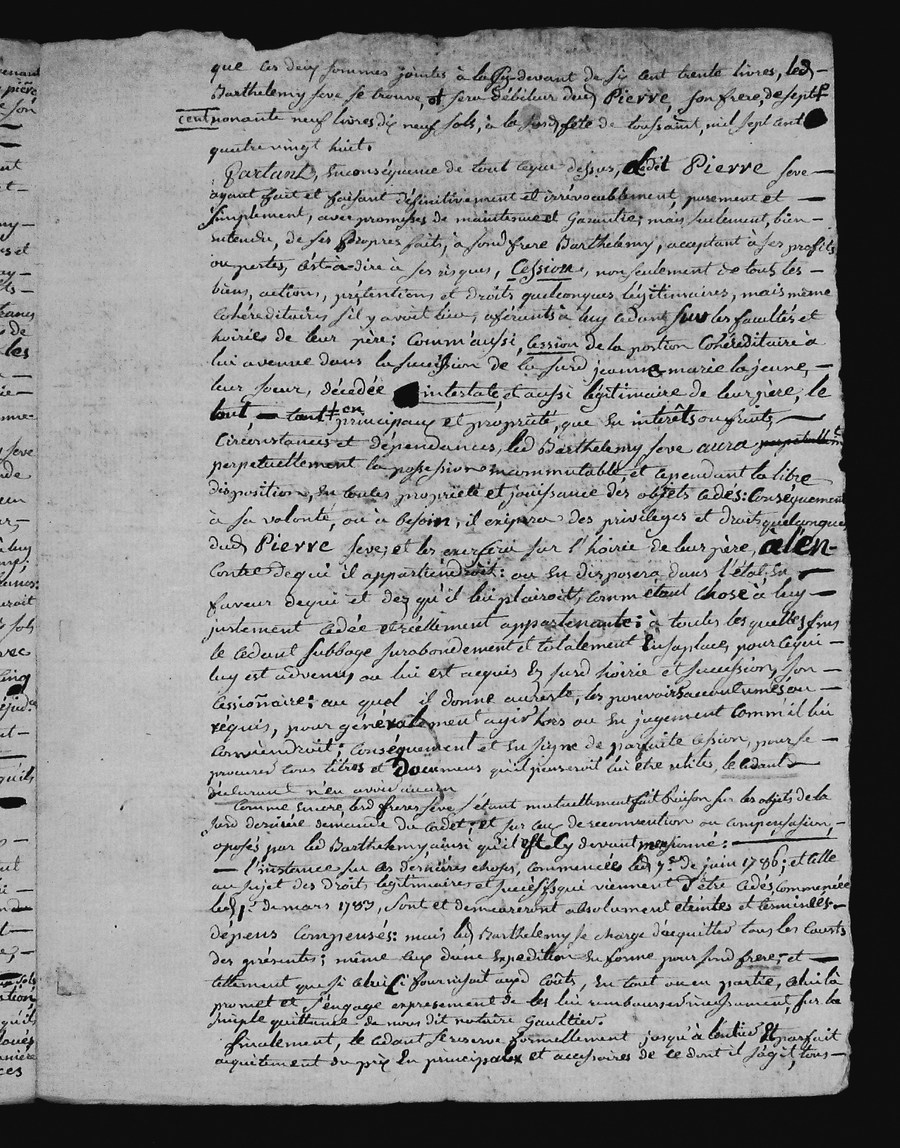 que ces deux sommes jointes à la Cy-devant de six cent trente livres, led. —
Barthelemy seve se trouve, et sera Débiteur dud. Pierre, son frere, de sept
cent nonante neuf livres dix neuf sols, à la susd. fête de toussaint, mil sept cent
quatre vingt huit.
Partant, En conséquence de tout ceque dessus, ledit Pierre seve —
ayant fait et faisant définitivement et irrévocablement, purement et —
simplement, avec promesses de maintenue et Garantie; mais seulement, bien —
entendu, de ses Propres faits, à sond. frere Barthelemy, acceptant à ses profits
ou pertes, c'est-à-dire à ses risques, Cession, non seulement de tous les —
biens, actions, prétentions et droits quelconques légitimaires, mais même
Cohéréditaires s'il y avoit lieu, aférants à luy cedant sur les facultés et
hoiries de leur père: Comm'aussi, cession de la portion Cohéréditaire à
lui avenue dans la succession de la susd. jeanne marie la jeune, —
leur soeur, décédée intestate, et aussi légitimaire de leur père, le
tout, — tant en principaux et propriété, que En intérêts ou fruits, —
Circonstances et dépendances, led. Barthelemy seve aura
perpetuellement la possession incommutable, et cependant la libre
disposition, En toutes propriété et jouissance des objets cedés: Conséquement
à sa volonté, ou à besoin, il exipera des privileges et droits quelconques
dud. Pierre seve; et les exercera sur l'hoirie de leur père, à l'en-
Contre de qui il appartiendroit: ou En disposera dans l'état, En —
faveur dequi et dez qu'il lui plairoit, Comm'étant chose à luy —
justement cedée et réellement appartenante: à toutes les quelles fins
le cedant subboge surabondement et totalement En sa place, pour cequi —
luy est advenu, ou lui est acquis Es susd. hoirie et succession, son —
cessionnaire: au quel il donne au reste, les pouvoirs accoutumés ou —
réquis, pour généralement agir hors ou En jugement Comm'il lui
Conviendroit; Conséquement et En signe de parfaite cession, pour se —
procurer tous titres et Documens qu'il penseroit lui être utiles, le cedant —
déclarant n'en avoir aucun
Comme encore, lesd. freres seve s'étant mutuellement fait Raison sur les objets de la
susd. derniere demande du Cadet, et sur ceux de reconvention ou compensation, —
oposés par led. Barthelemy, ainsi qu'il est cy devant mentionné: —
— l'instence sur ces dernieres choses, commencée led. 7e. de juin 1786; et celle
au sujet des Droits légitimaires et succéssifs qui viennent d'être cedés, Commencée
led. 1er. de mars 1783, sont et demeureront absolument eteintes et terminées —
dépens Compensés: mais led. Barthelemy se charge d'acquitter tous les Couts
des présentes; même ceux d'une Expedition En forme pour sond. frere; et —
tellement que si celuici fournissoit auxd. Coûts, En tout ou en partie, celui là
promet et s'engage expressement de les lui rembourser incessament, sur la
simple quittance de nous dit notaire Gaultier.
Finalement, le cedant se reserve formellement jusqu'à l'entier Et parfait
acquitement du prix En principaux et accessoires de ce dont il s'agit, tous —